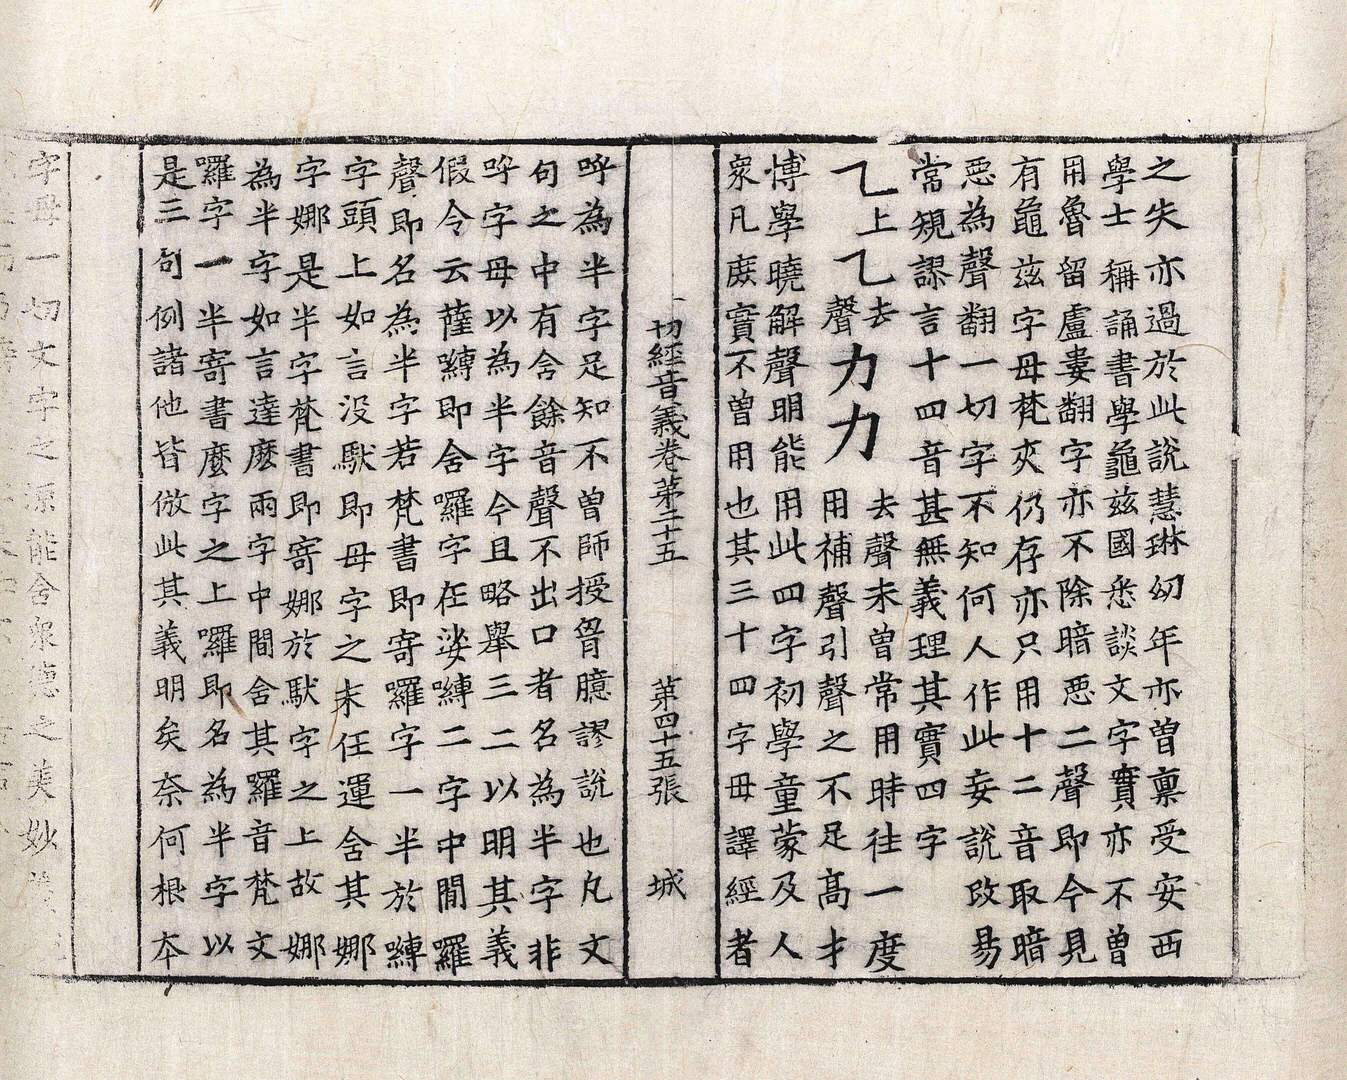 之失亦過於此說慧琳幼年亦曽稟受安西
學士稱誦書學龜兹國悉談文字實亦不曽
用魯留盧婁翻字亦不除暗惡二聲即今見
有龜兹字母梵夾仍存亦只用十二音取暗
惡為聲翻一切字不知何人作此妄說改易
常規謬言十四音甚無義理其實四字
乙上乙去聲力力去聲未曽常用時往一度用補聲引聲之不足高才
博學曉解聲明能用此四字初學童蒙及人
衆凡庶實不曽用也其三十四字母譯經者
一切經音義卷第二十五 第四十五張 城
呼為半字足知不曽師授胷臆謬說也凡文
句之中有含餘音聲不出口者名為半字非
呼字母以為半字今且略舉三二以明其義
假令云薩嚩即含囉字在娑嚩二字中間囉
聲即名為半字若梵書即寄囉字一半於嚩
字頭上如言没馱即母字之末任運含其娜
字娜是半字梵書即寄娜於馱字之上故娜
為半字如言達麽兩字中間含其囉音梵文
囉字一半寄書麽字之上囉即名為半字以
是三句例諸他皆倣此其義明矣奈何根本
字母一切文字之源能含衆德之美妙